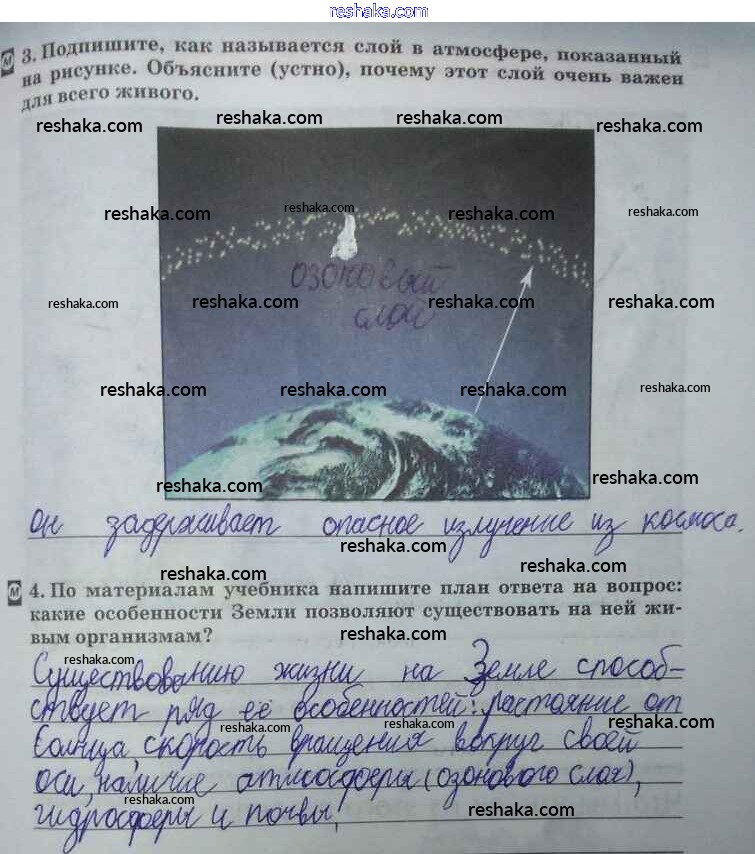 reshaka.com
3. Подпишите, как называется слой в атмосфере, показанный
на рисунке. Объясните (устно), почему этот слой очень важен
для всего живого.
reshaka.com reshaka.com reshaka.com reshaka.com
reshaka.com reshaka.com reshaka.com reshaka.com
озоновый
reshaka.com reshaka.com reshaka.com reshaka.com
слой
reshaka.com reshaka.com reshaka.com reshaka.com
reshaka.com reshaka.com
Он задерживает опасное излучение из космоса.
reshaka.com
reshaka.com reshaka.com
4. По материалам учебника напишите план ответа на вопрос:
какие особенности Земли позволяют существовать на ней жи-
вым организмам?
reshaka.com
reshaka.com
Существованию жизни на Земле способ-
ствует ряд её особенностей: растояние от
reshaka.com reshaka.com reshaka.com
Солнца, скорость вращения вокруг своей
оси, наличие атмосферы (озонового слоя),
reshaka.com reshaka.com
гидросферы и почвы,